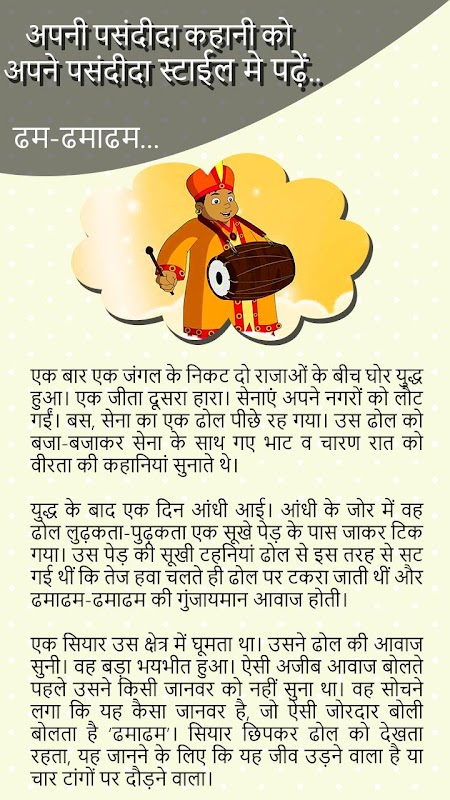 अपनी पसंदीदा कहानी को
अपने पसंदीदा स्टाईल मे पढ़ें..
ढम-ढमाढम...
एक बार एक जंगल के निकट दो राजाओं के बीच घोर युद्ध
हुआ। एक जीता दूसरा हारा। सेनाएं अपने नगरों को लौट
गईं। बस, सेना का एक ढोल पीछे रह गया। उस ढोल को
बजा-बजाकर सेना के साथ गए भाट व चारण रात को
वीरता की कहानियां सुनाते थे।
युद्ध के बाद एक दिन आंधी आई। आंधी के जोर में वह
ढोल लुढ़कता-पुढ़कता एक सूखे पेड़ के पास जाकर टिक
गया। उस पेड़ की सूखी टहनियां ढोल से इस तरह से सट
गई थीं कि तेज हवा चलते ही ढोल पर टकरा जाती थीं और
ढमाढम-ढमाढम की गुंजायमान आवाज होती।
एक सियार उस क्षेत्र में घूमता था। उसने ढोल की आवाज
सुनी। वह बड़ा भयभीत हुआ। ऐसी अजीब आवाज बोलते
पहले उसने किसी जानवर को नहीं सुना था। वह सोचने
लगा कि यह कैसा जानवर है, जो ऐसी जोरदार बोली
बोलता है 'ढमाढम'। सियार छिपकर ढोल को देखता
रहता, यह जानने के लिए कि यह जीव उड़ने वाला है या
चार टांगों पर दौड़ने वाला।